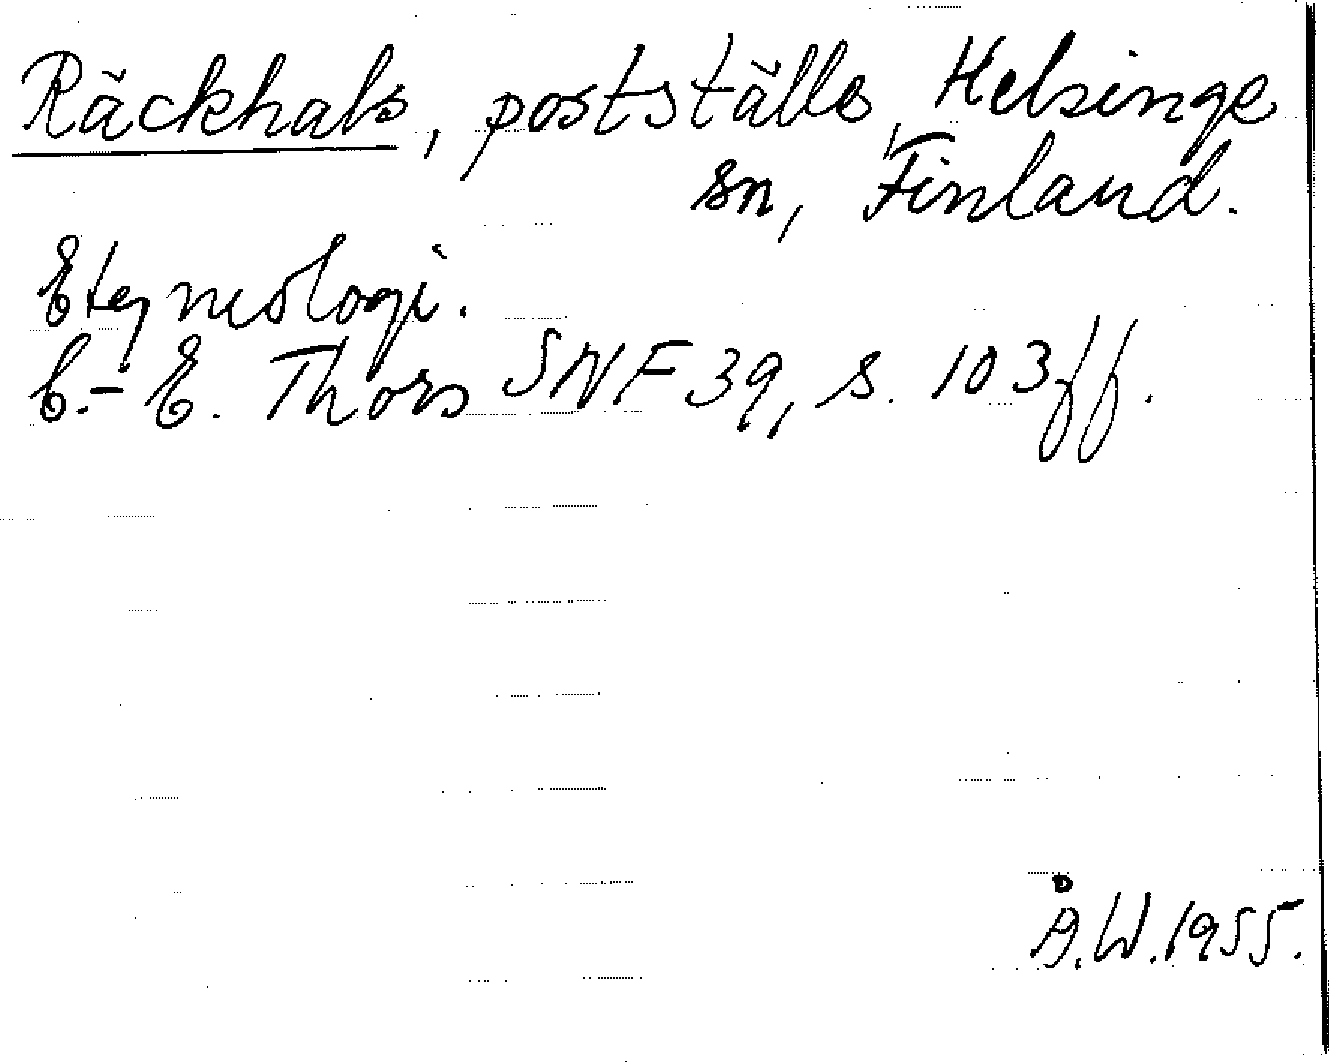 Räckhals, postställe, Helsinge
sn, Finland.
Etymologi.
C.-E. Thors SNF 39, s. 103ff.
Å.W.1955.